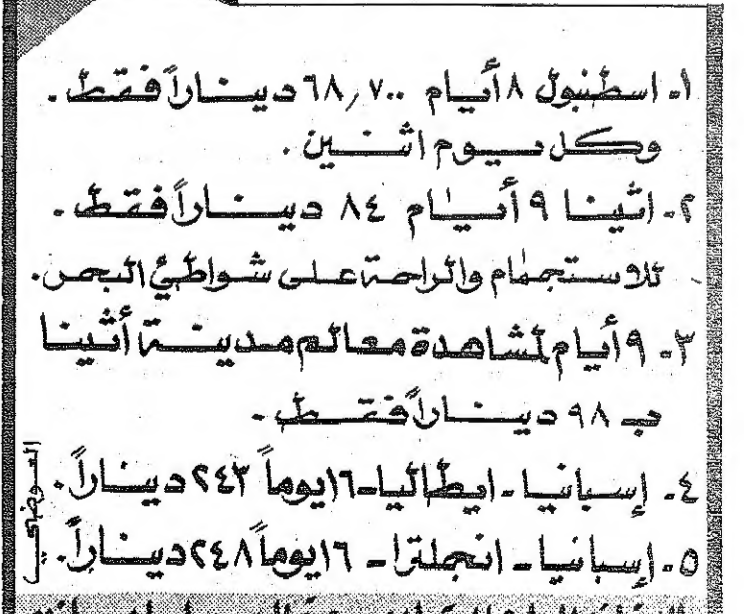 ١- اسطنبول ٨ أيام ٦٨,٧٠٠ ديناراً فقط.
وكل يوم اثنين.
٢- اثينا ٩ أيام ٨٤ ديناراً فقط.
للاستجمام والراحة على شواطئ البحر.
٣- ٩ أيام لمشاهدة معالم مدينة أثينا
بـ ٩٨ ديناراً فقط.
٤- إسبانيا - ايطاليا - ١٦ يوماً ٢٤٣ ديناراً.
٥- إسبانيا - انجلترا - ١٦ يوماً ٢٤٨ ديناراً.
العوضي